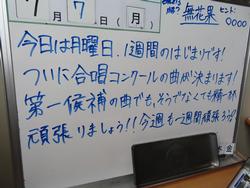 7月7日(月)
無花果 ヒント
○○○○
今日は月曜日、1週間のはじまりです!
ついに合唱コンクールの曲が決まります!
第一候補の曲でも、そうでなくても精一杯
頑張りましょう!!今週も一週間頑張ろう!
金